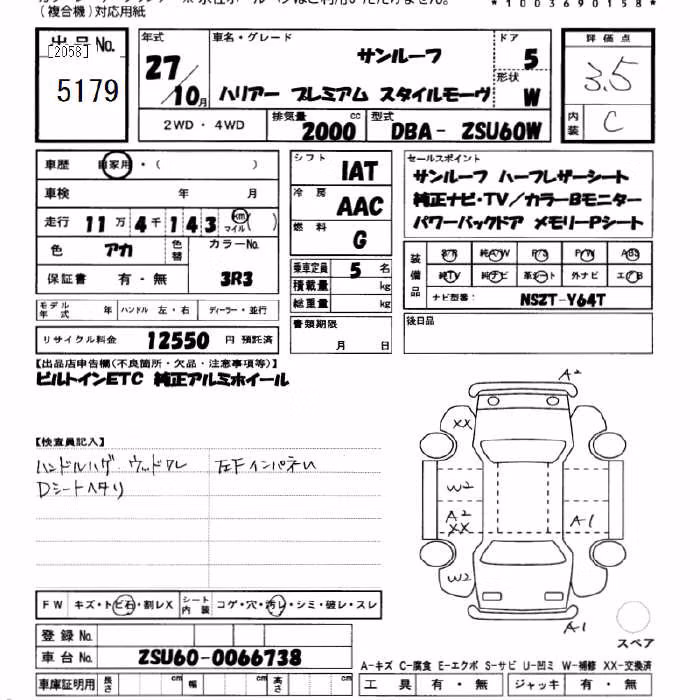 (複合機)対応用紙
*1003690158*
出品No.
[2058]
5179
年式 車名・グレード ドア
27/10月
サンルーフ 5
形状
ハリアー プレミアム スタイルモーヴ W
2WD・4WD 排気量 2000 cc 型式 DBA- ZSU60W
評価点
3.5
内装 C
車歴 自家用・( )
車検 年 月
走行 11万4千143 km マイル ( )
色 アカ 色替 カラーNo. 3R3
保証書 有・無
モデル年式 年 ハンドル 左・右 ディーラー・並行
リサイクル料金 12550 円 預託済
シフト IAT
冷房 AAC
燃料 G
乗車定員 5 名
積載量 kg
総重量 kg
書類期限
月 日
セールスポイント
サンルーフ ハーフレザーシート
純正ナビ・TV/カラーBモニター
パワーバックドア メモリーPシート
装備品 S/R 純A/W P/S P/W ABS
純TV 純ナビ 革シート 外ナビ エアB
ナビ型番: NSZT-Y64T
後日品
【出品店申告欄(不良箇所・欠品・注意事項等)】
ビルトインETC 純正アルミホイール
【検査員記入】
ハンドルハゲ・ウッドワレ
左FインパネL
Dシートヘタリ
A2
XX
W2
A2
XX
A1
W2
A1
スペア
FW キズ・トビ石・割レX シート内装 コゲ・穴・汚レ・シミ・破レ・スレ
登録No.
車台No. ZSU60-0066738
車庫証明用 長さ cm 幅 cm 高さ cm
A-キズ C-腐食 E-エクボ S-サビ U-凹ミ W-補修 XX-交換済
工具 有・無 ジャッキ 有・無